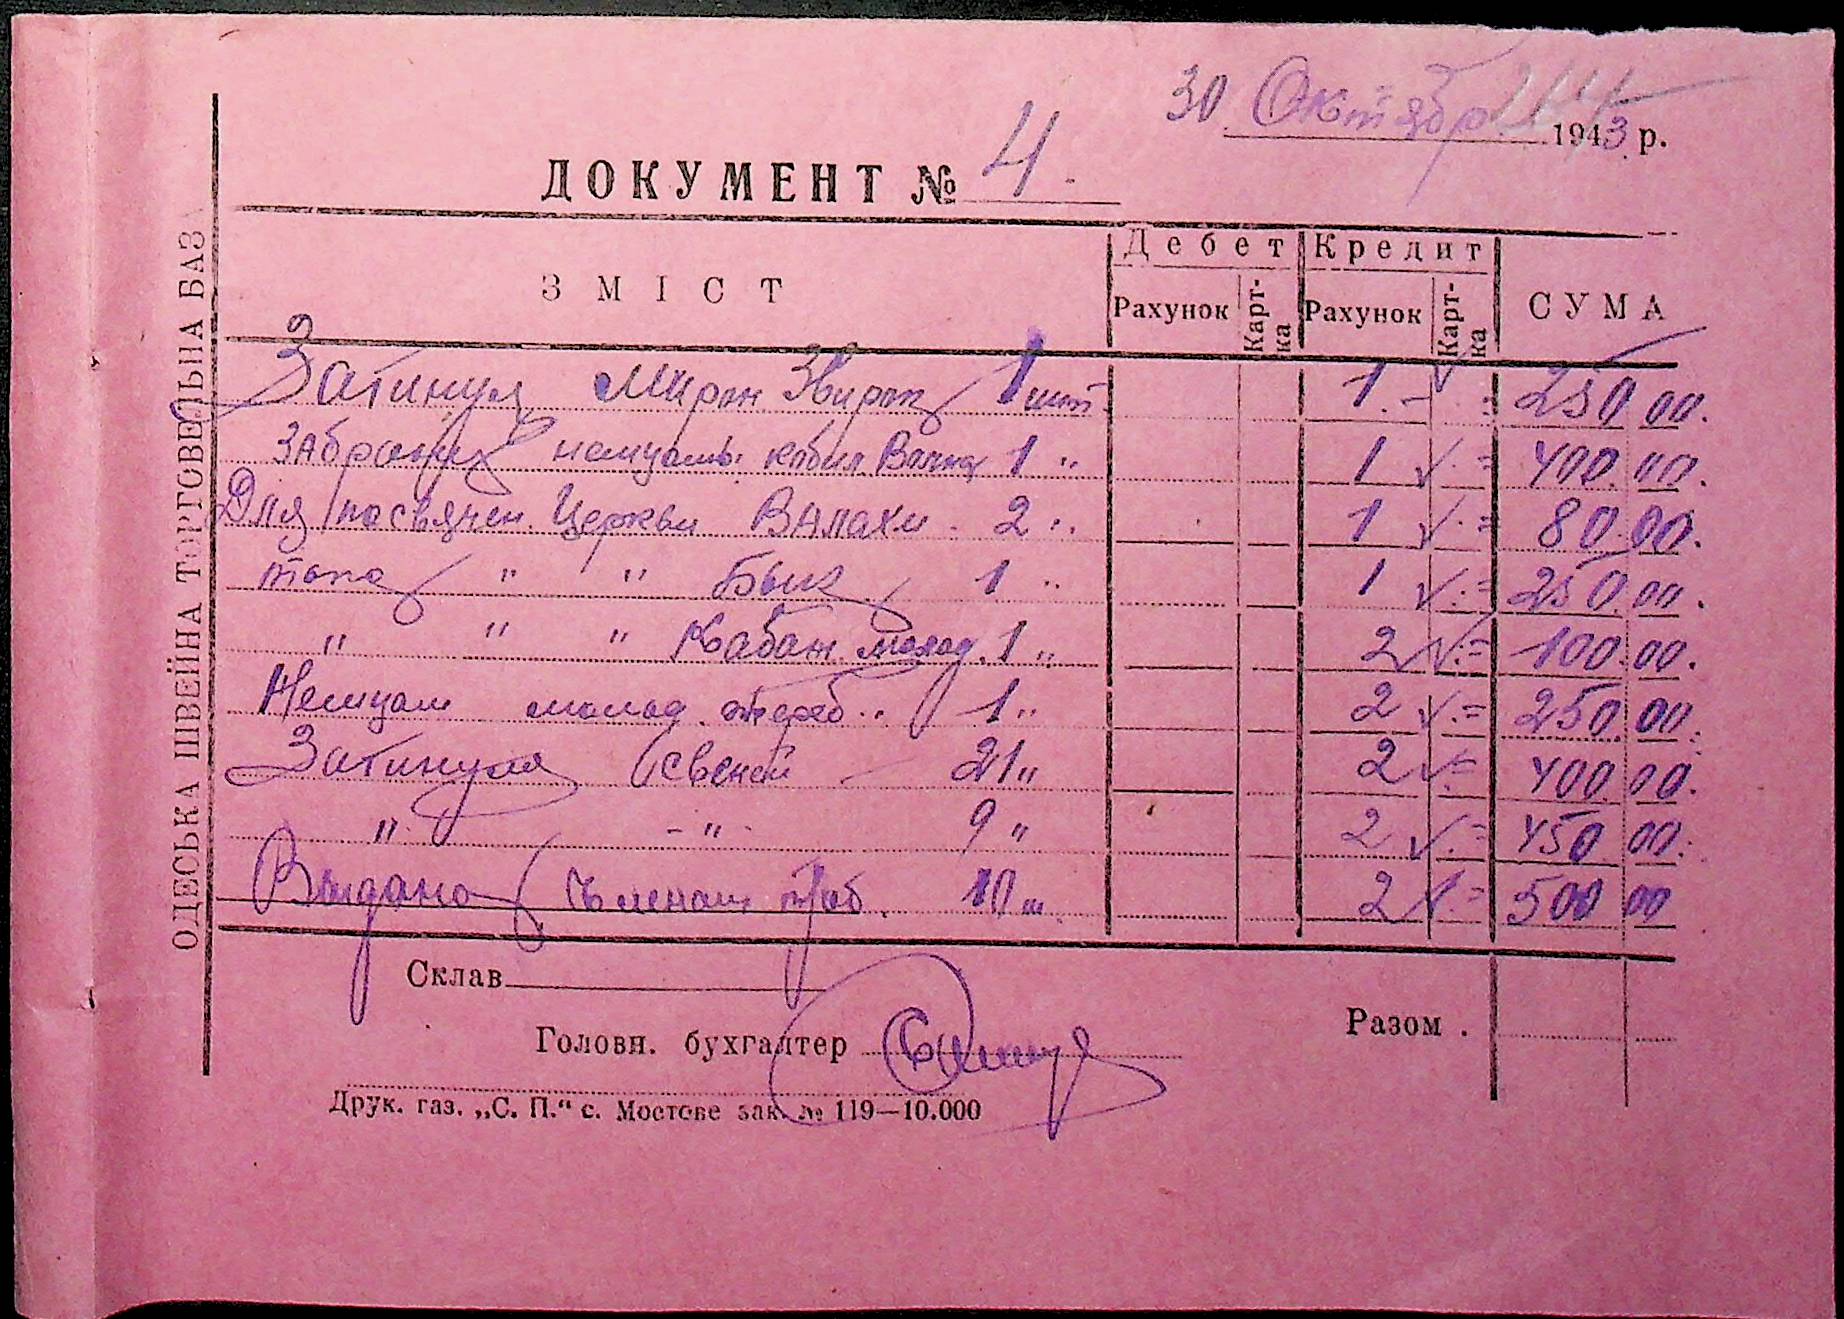 30 Октября 1943 р.
ДОКУМЕНТ № 4.
ОДЕСЬКА ШВЕЙНА ТОРГОВЕЛЬНА БАЗ
ЗМІСТ Дебет Кредит СУМА
Рахунок Карт-ка Рахунок Карт-ка
Загинул 1 шт. 1. - 250 00.
немцамы 1 " 1 400.00.
Для посвячен. Церкви Валахи. 2 " 1 80.00.
" " Бык 1 " 1 250.00.
" " " Кабан молод. 1 " 2 100.00.
Немцам молод. жереб. 1 " 2 250.00
Загинуло свеней 21 " 2 400.00.
" - " - 9 " 2 450 00.
Выдано 10 " 2 500 00
Склав
Головн. бухгалтер
Разом .
Друк. газ. „С. П.“ с. Мостове зак. № 119—10.000